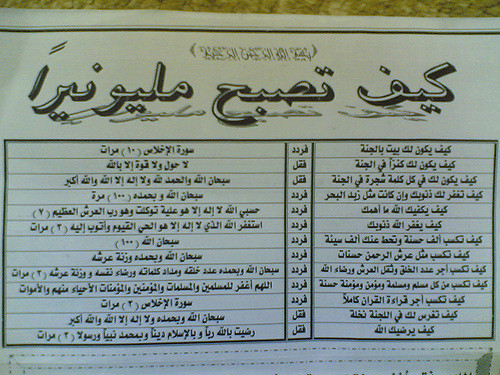 بسم الله الرحمن الرحيم
كيف تصبح مليونيراً
كيف يكون لك بيت بالجنة فردد سورة الإخلاص ( ١٠ ) مرات
كيف يكون لك كنزاً في الجنة فقل لا حول ولا قوة إلا بالله
كيف يكون لك في كل كلمة شجرة في الجنة فقل سبحان الله والحمد لله ولا إله إلا الله والله أكبر
كيف تغفر لك ذنوبك وإن كانت مثل زبد البحر فردد سبحان الله وبحمده ( ١٠٠ ) مرة
كيف يكفيك الله ما أهمك فردد حسبي الله لا إله إلا هو علية توكلت وهو رب العرش العظيم ( ٧ )
كيف يغفر الله ذنوبك فردد استغفر الله الذي لا إله إلا هو الحي القيوم وأتوب إليه ( ٣ ) مرات
كيف تكسب ألف حسنة وتحط عنك ألف سيئة فردد سبحان الله ( ١٠٠ )
كيف تكسب مثل عرش الرحمن حسنات فردد سبحان الله وبحمده وزنة عرشه
كيف تكسب أجر عدد الخلق وثقل العرش ورضاء الله فردد سبحان الله وبحمده عدد خلقه ومداد كلماته ورضاء نفسه وزنة عرشه ( ٣ ) مرات
كيف تكسب من كل مسلم ومسلمة ومؤمن ومؤمنة حسنة فردد اللهم أغفر للمسلمين والمسلمات والمؤمنين والمؤمنات الأحياء منهم والأموات
كيف تكسب أجر قراءة القران كاملاً فردد سورة الإخلاص ( ٣ ) مرات
كيف تغرس لك في اللجنة نخلة فقل سبحان الله وبحمده ولا إله إلا الله والله أكبر
كيف يرضيك الله فقل رضيت بالله رباً و بالإسلام ديناً وبمحمد نبياً ورسولا ( ٣ ) مرات